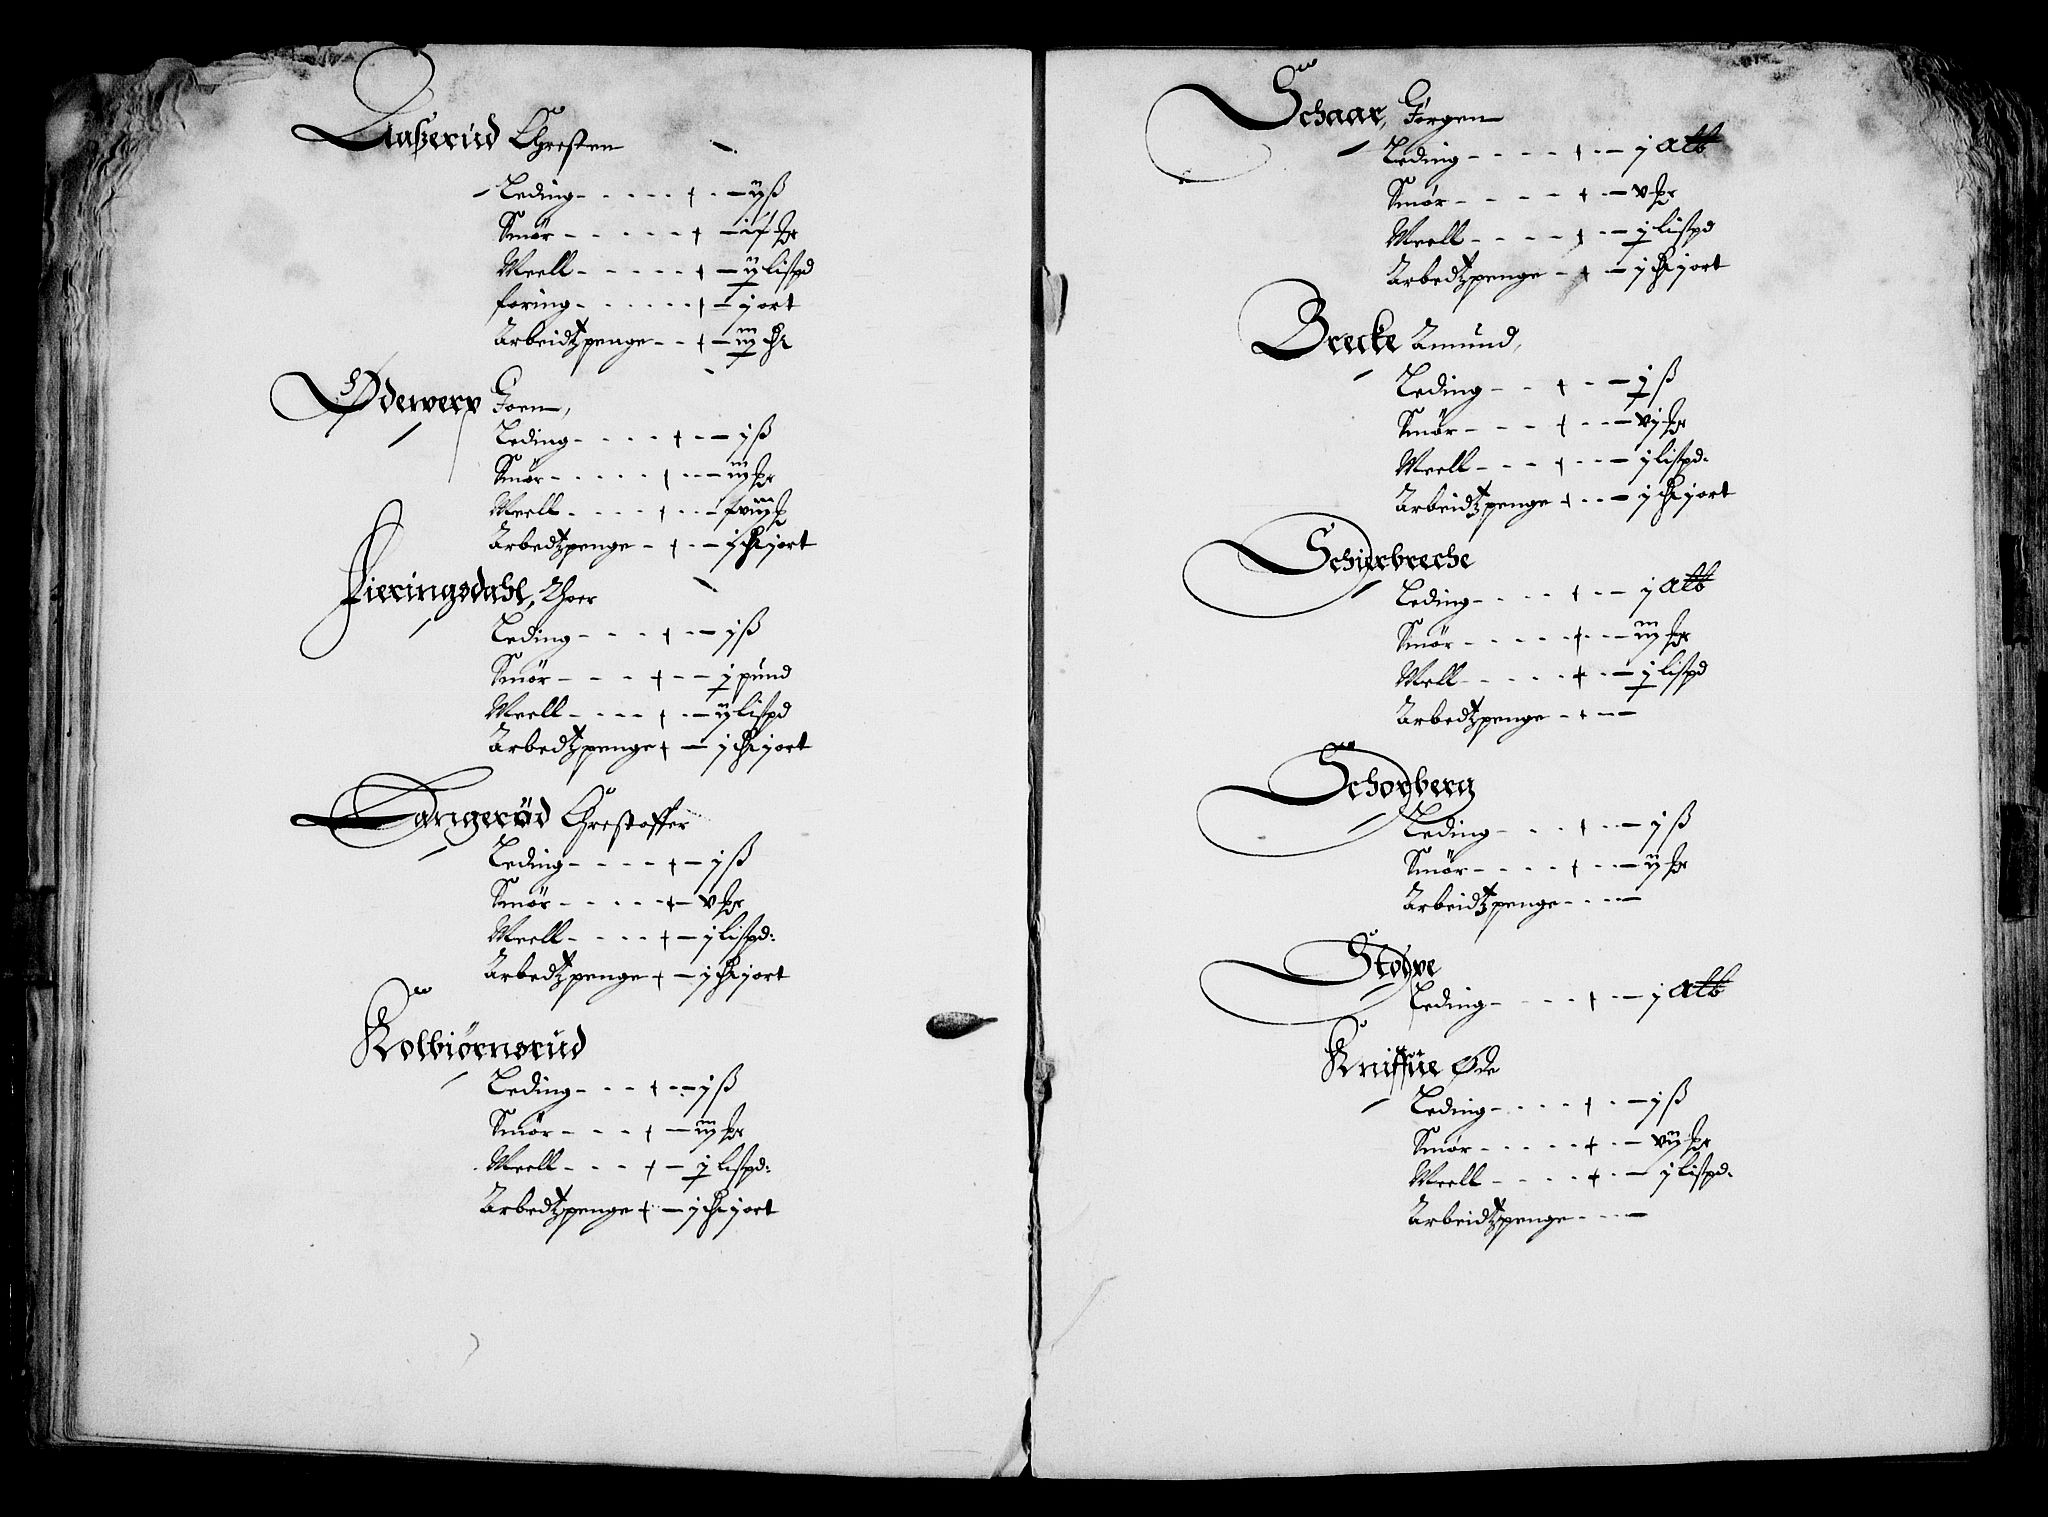 Aaßerud Chresten
Leding - - - - - + - - ij ß
Smør - - - - - +
Meell - - - - - + - ij lispd
foring - - - - - + - j ort
Arbeidtzpenge - - + - iij
Øderverp Joen,
Leding - - - - + - - j ß
Smør - - - - - + - - iij
Meell - - - - + - -
Arbedtzpenge - + - - j j ort
Fieringsdahl, Thoer
Leding - - - + - - j ß
Smør - - - + - - j pund
Meell - - - - + - - ij lispd
Arbedtzpenge + - j j ort
Langerød Chrestoffer
Leding - - - - + - j ß
Smør - - - - + - v
Meell - - - - + - j lispd:
Arbedtzpenge + - j j ort
Kolbiørnsrud
Leding - - - + - - j ß
Smør - - - + - iij
Meell - - - + - j lispd:
Arbedtzpenge + - j j ort
Schaar, Jørgen
Leding - - - - + - - j alb
Smør - - - - + - - v
Meell - - - - + - - j lispd
Arbedtzpenge - + - j j ort
Brecke Amund,
Leding - - + - - j ß
Smør - - - + - - vj
Meell - - - + - - j lispd:
Arbeidtzpenge + - - j j ort
Schierbreche
Leding - - - - + - - j alb
Smør - - - - - + - - iij
Mell - - - - - + - - j lispd
Arbedtzpenge - + - -
Schorberg
Leding - - - - + - - j ß
Smør - - - - - + - - ij
Arbeidtzpenge - - - -
Leding - - - - + - - j alb
Kniffue Øde
Leding - - - - + - - j ß
Smør - - - - - + - - vij
Meell - - - - + - - j lispd:
Arbeidtzpenge - - - -